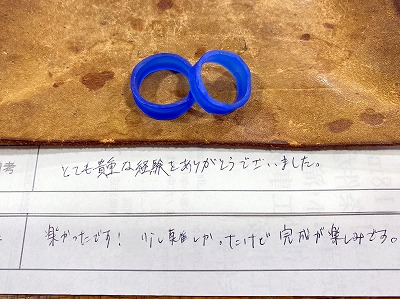 考
とても貴重な経験をありがとうございました。
楽かったです! 少し難しかったけど完成が楽しみです。